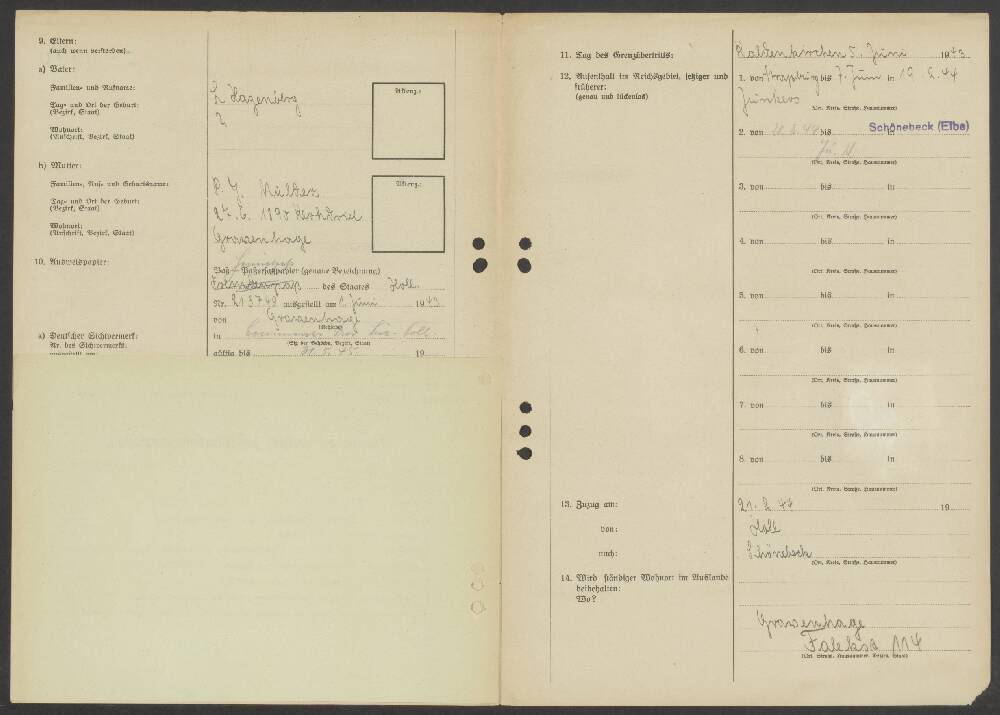 9. Eltern:
(auch wenn verstorben).
a) Vater:
Familien- und Rufname:
Tag- und Ort der Geburt:
(Bezirk, Staat)
Wohnort:
(Anschrift, Bezirk, Staat)
Hazenberg
?
Aktenz.:
b) Mutter:
Familien-, Ruf- und Geburtsname:
Tag- und Ort der Geburt:
(Bezirk, Staat)
Wohnort:
(Anschrift, Bezirk, Staat)
P. J. Mulder
27. 6. 1890
Gravenhage
Aktenz.:
10. Ausweispapier:
Paß - Paßersatzpapier (genaue Bezeichnung)
des Staates Holl.
Nr. 213748 ausgestellt am 1. Juni 1943
von Gravenhage
(Behörde)
in
(Sitz der Behörde, Bezirk, Staat)
a) Deutscher Sichtvermerk:
Nr. des Sichtvermerks:
ausgestellt am
gültig bis 31. 5. 45 19
11. Tag des Grenzübertritts:
Kaldenkirchen 5. Juni 1943
12. Aufenthalt im Reichsgebiet, jetziger und
früherer:
(genau und lückenlos)
1. von bis 7. Juni in 19. 2. 44
Junkers
(Ort, Kreis, Straße, Hausnummer)
2. von 21. 2. 44 bis Schönebeck (Elbe)
(Ort, Kreis, Straße, Hausnummer)
3. von bis in
(Ort, Kreis, Straße, Hausnummer)
4. von bis in
(Ort, Kreis, Straße, Hausnummer)
5. von bis in
(Ort, Kreis, Straße, Hausnummer)
6. von bis in
(Ort, Kreis, Straße, Hausnummer)
7. von bis in
(Ort, Kreis, Straße, Hausnummer)
8. von bis in
(Ort, Kreis, Straße, Hausnummer)
13. Zuzug am:
21. 2. 44 19
von:
Holl
nach:
Schönebeck
(Ort, Kreis, Straße, Hausnummer)
14. Wird ständiger Wohnort im Auslande
beibehalten:
Wo?
Gravenhage
114
(Ort, Straße, Hausnummer, Bezirk, Staat)